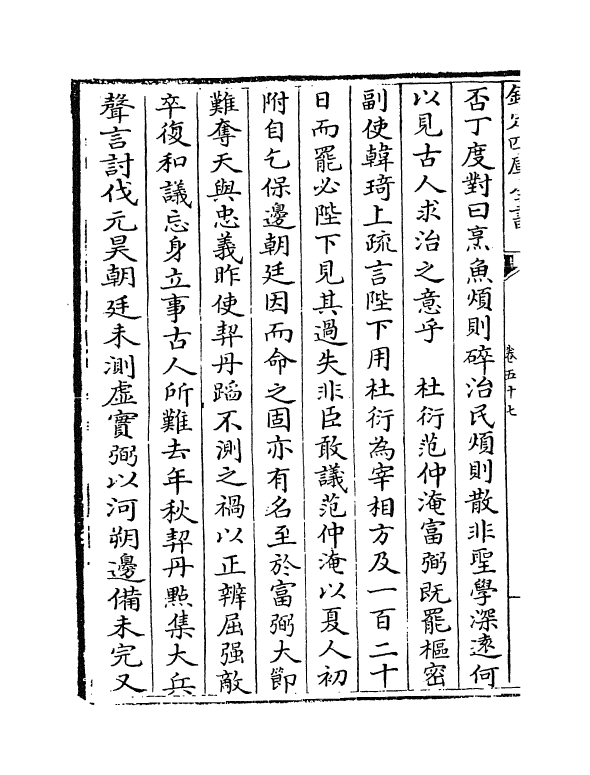 欽定四庫全書
卷五十七
否丁度對曰烹魚煩則碎治民煩則散非聖學深遠何
以見古人求治之意乎　杜衍范仲淹富弼既罷樞密
副使韓琦上疏言陛下用杜衍為宰相方及一百二十
日而罷必陛下見其過失非臣敢議范仲淹以夏人初
附自乞保邊朝廷因而命之固亦有名至於富弼大節
難奪天與忠義昨使契丹蹈不測之禍以正辨屈强敵
卒復和議忘身立事古人所難去年秋契丹㸃集大兵
聲言討伐元昊朝廷未測虛實弼以河朔邊備未完又